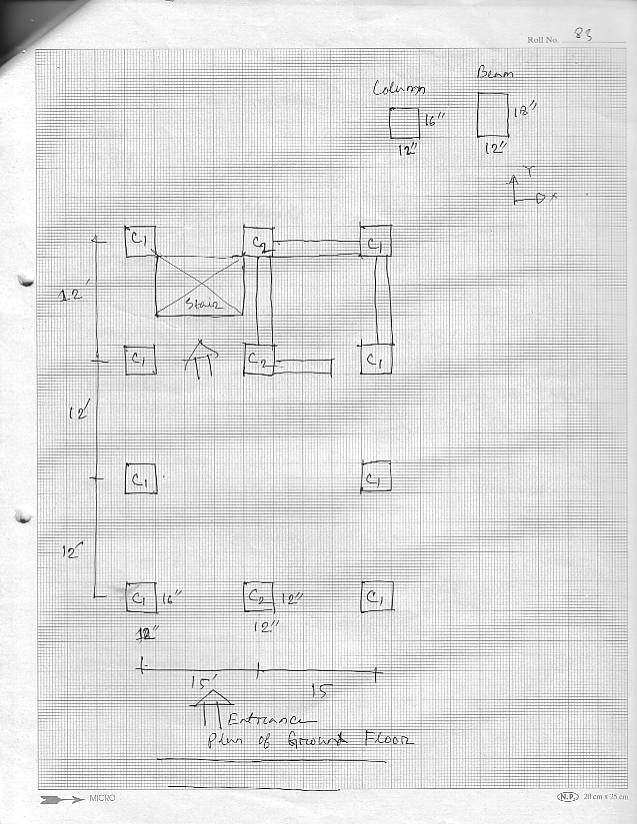 Roll No. 83
Beam
Column
18"
16"
12" 12"
Y
X
C1 C2 C1
12'
Stair
C1 C2 C1
12'
C1 C1
12'
C1 16" C2 12" C1
12" 12"
15' 15
Entrance
Plan of Ground Floor
MICRO N.P. 20 cm x 25 cm